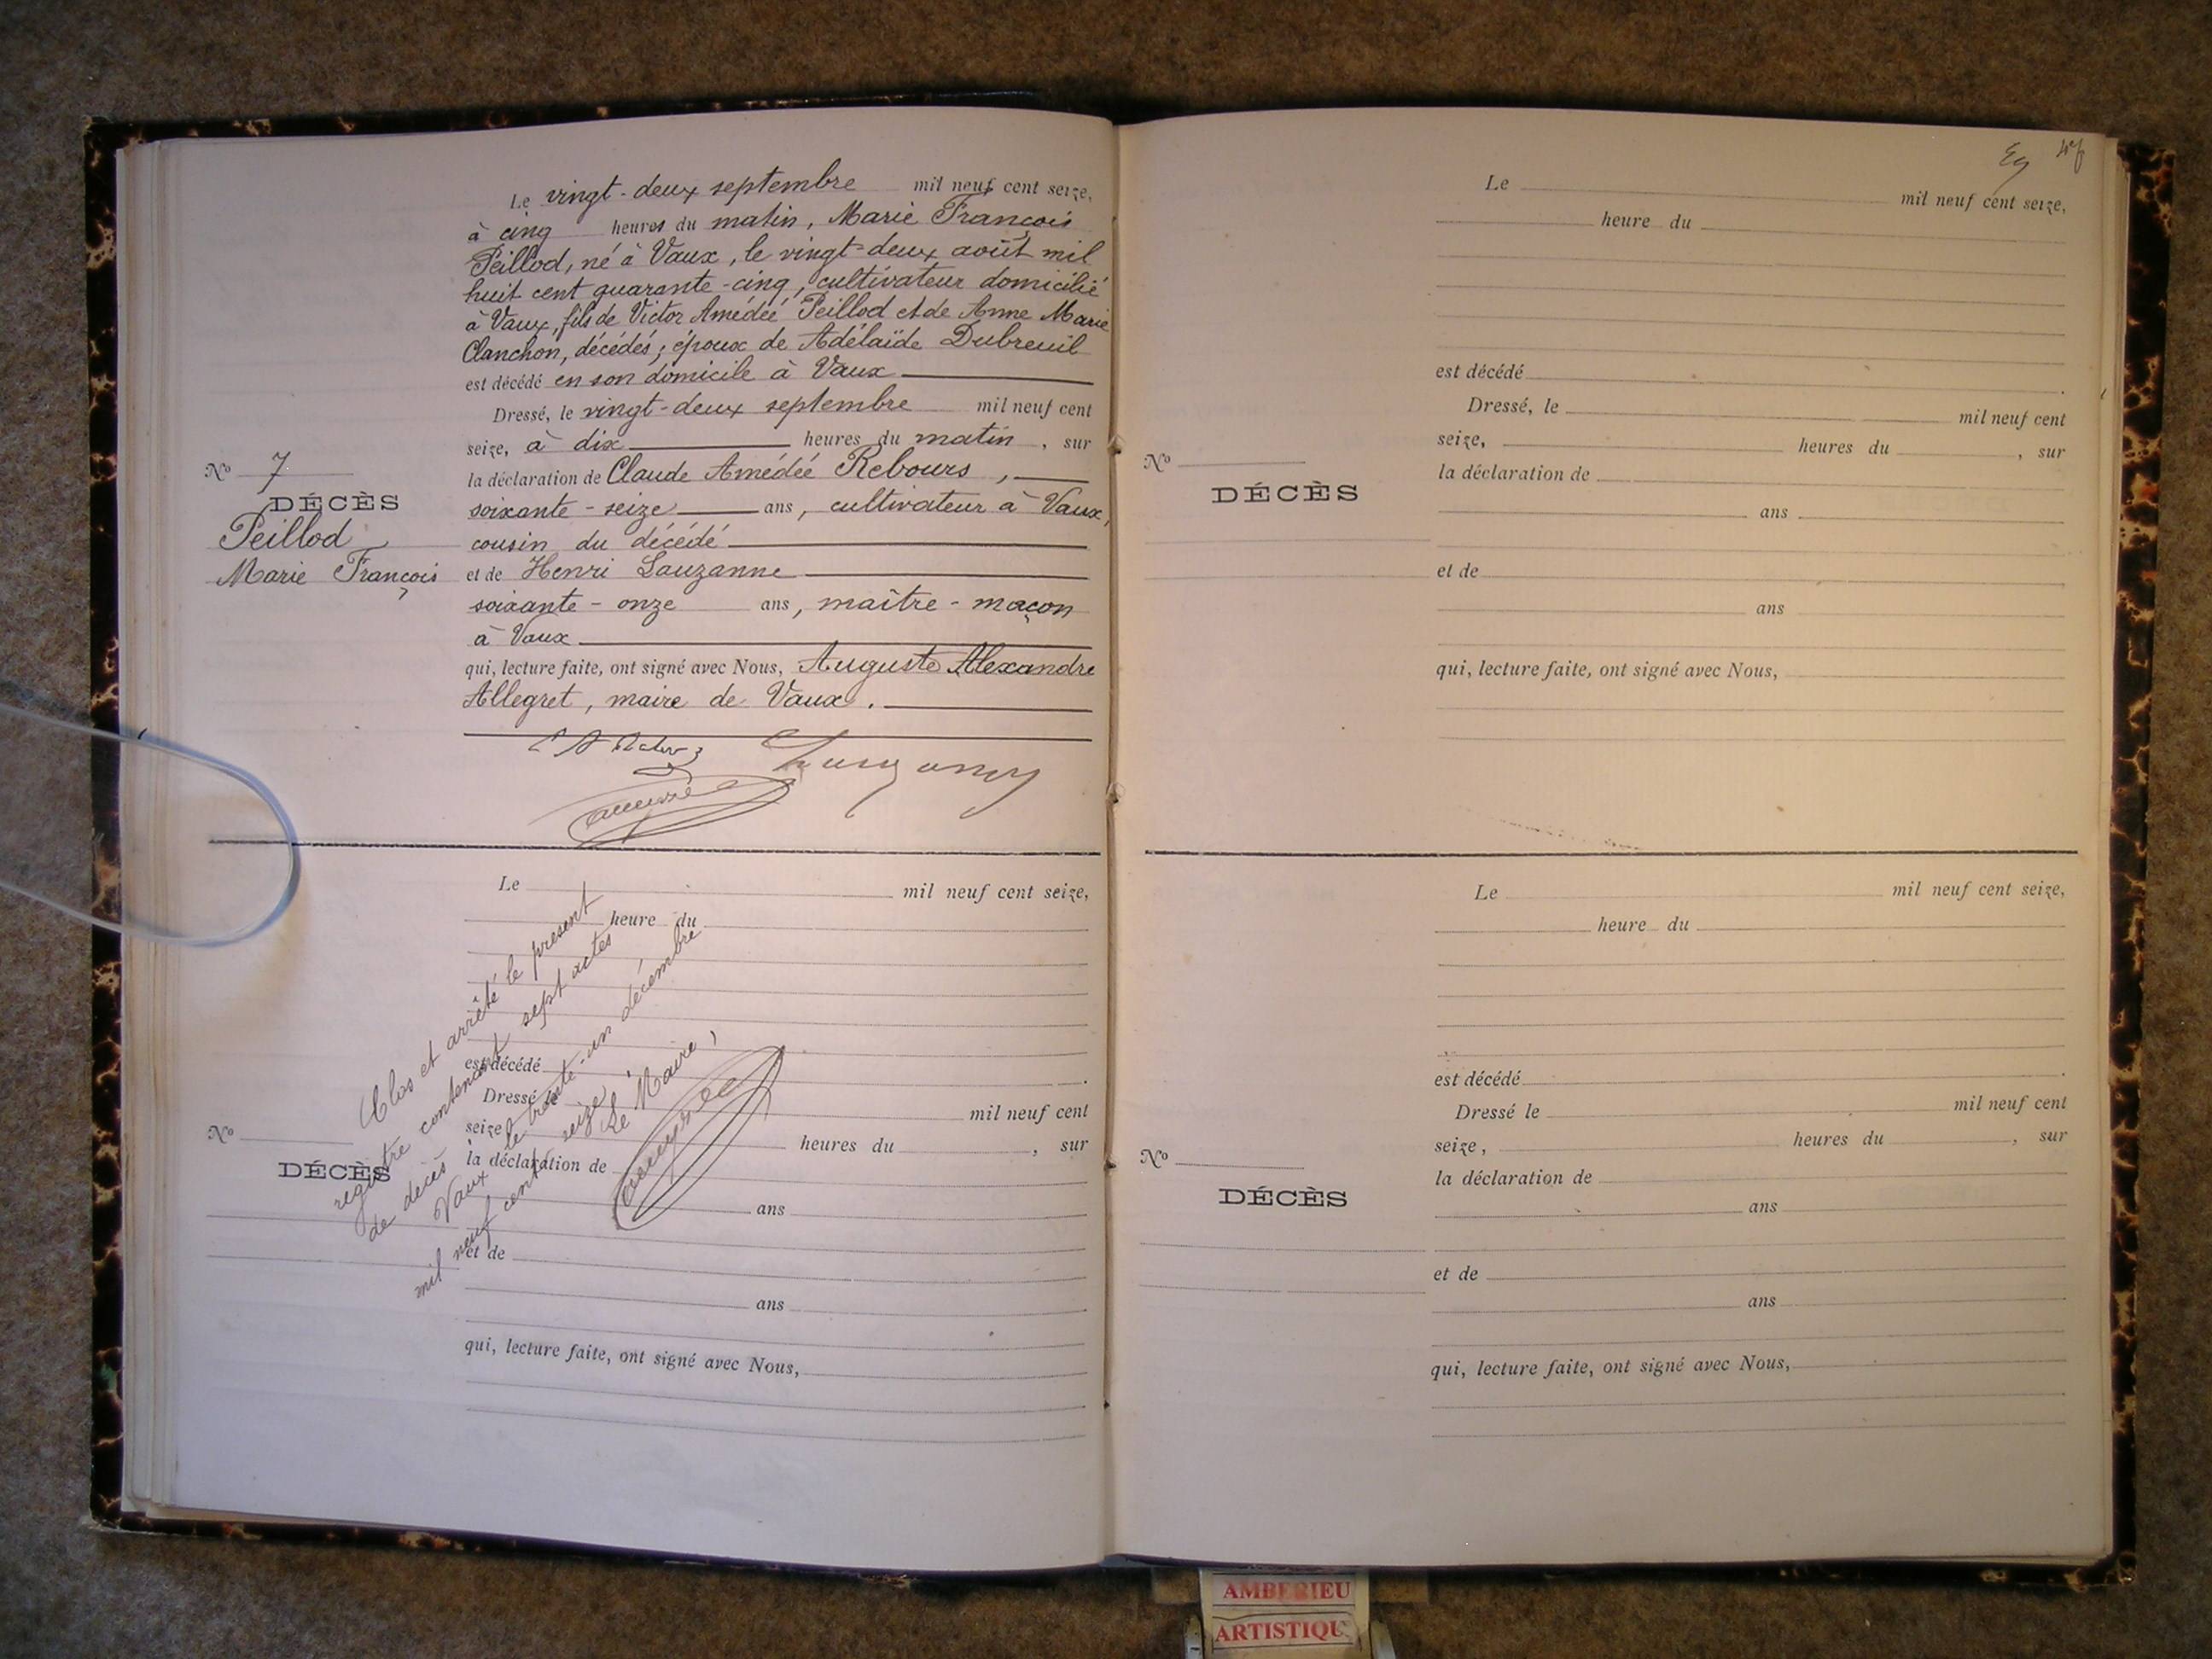 Le vingt-deux septembre mil neuf cent seize,
à cinq heures du matin, Marie François
Peillod, né à Vaux, le vingt-deux août mil
huit cent quarante-cinq, cultivateur domicilié
à Vaux, fils de Victor Amédée Peillod et de Anne Marie
Clanchon, décédés; époux de Adélaïde Dubreuil
est décédé en son domicile à Vaux
Dressé, le vingt-deux septembre mil neuf cent
seize, à dix heures du matin, sur
la déclaration de Claude Amédée Rebours,
soixante-seize ans, cultivateur à Vaux,
cousin du décédé
et de Henri Lauzanne
soixante-onze ans, maître-maçon
à Vaux
qui, lecture faite, ont signé avec Nous, Auguste Alexandre
Allegret, maire de Vaux.
No 7
DÉCÈS
Peillod
Marie François
Le mil neuf cent seize,
heure du
est décédé
Dressé le mil neuf cent
seize, heures du , sur
la déclaration de
ans
et de
ans
qui, lecture faite, ont signé avec Nous,
No
DÉCÈS
Clos et arrêté le présent
registre contenant sept actes
de décès
Vaux le trente-un décembre
mil neuf cent seize
Le Maire,
Le mil neuf cent seize,
heure du
est décédé
Dressé, le mil neuf cent
seize, heures du , sur
la déclaration de
ans
et de
ans
qui, lecture faite, ont signé avec Nous,
No
DÉCÈS
Le mil neuf cent seize,
heure du
est décédé
Dressé le mil neuf cent
seize, heures du , sur
la déclaration de
ans
et de
ans
qui, lecture faite, ont signé avec Nous,
No
DÉCÈS
AMBERIEU
ARTISTIQU